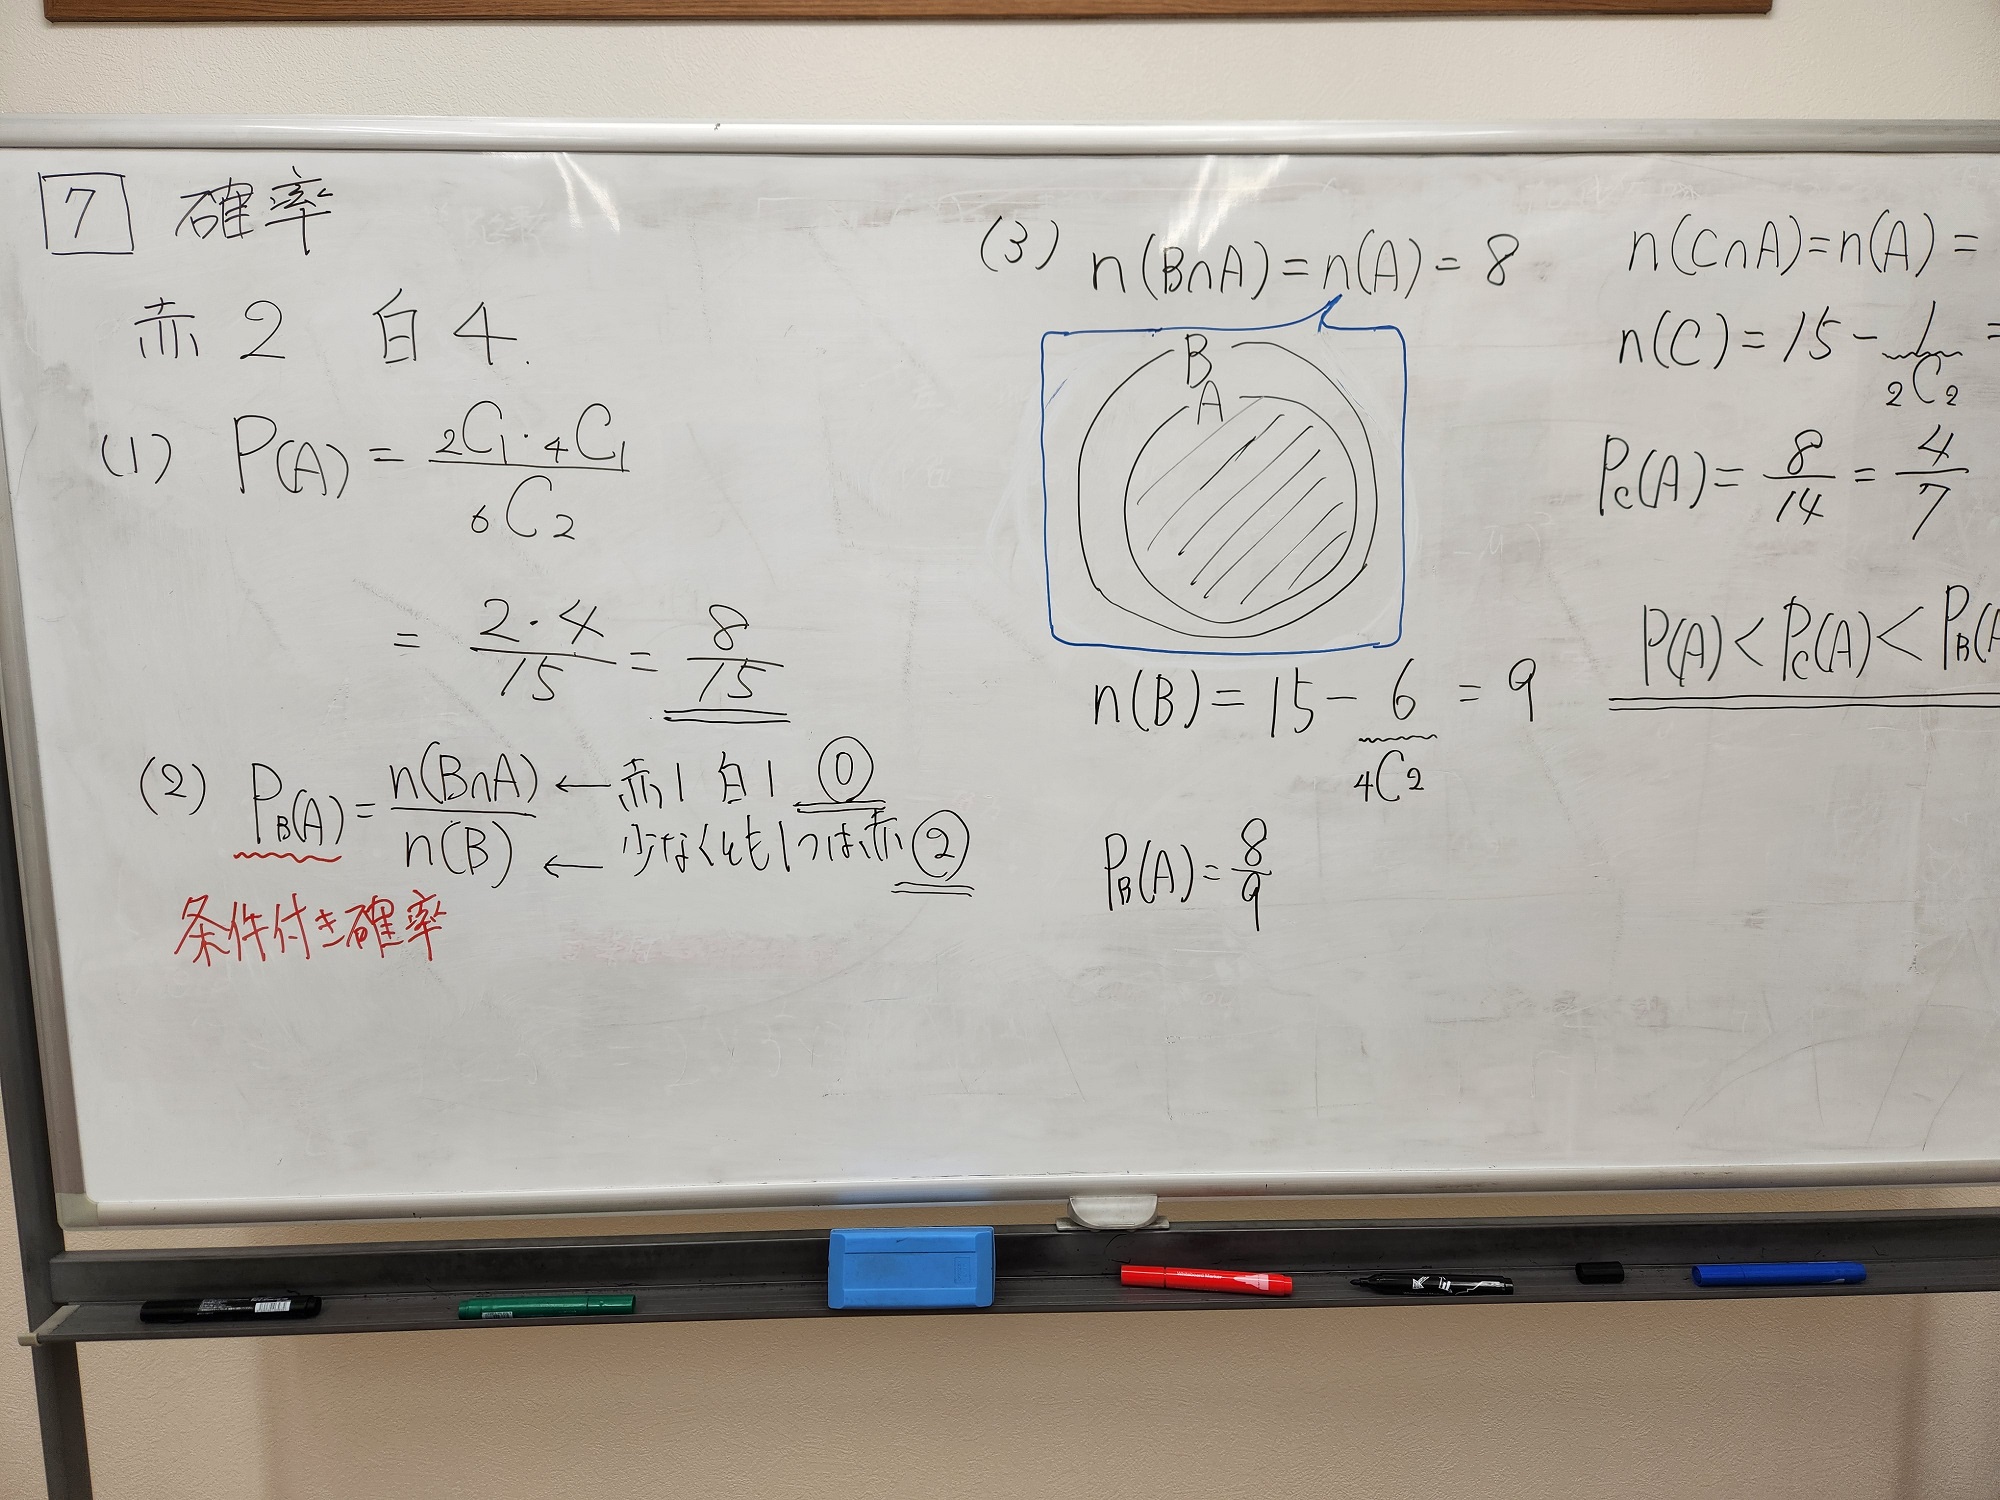 7 確率
赤 2 白 4.
(1) P(A) = 2C1・4C1 / 6C2
= 2・4 / 15 = 8 / 15
(2) PB(A) = n(B∩A) / n(B)
← 赤1 白1 ⓪
← 少なくとも1つは赤 ②
条件付き確率
(3) n(B∩A) = n(A) = 8
B
A
n(B) = 15 - 6 = 9
4C2
PB(A) = 8 / 9
n(C∩A) = n(A) =
n(C) = 15 - 1 =
2C2
PC(A) = 8 / 14 = 4 / 7
P(A) < PC(A) < PB(A
Whiteboard Marker